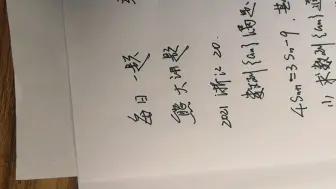 每日一题
熊大讲题
2021 浙江 20.
数列{an}满足
4Sn+1=3Sn-9,
(1) 求数列{an}